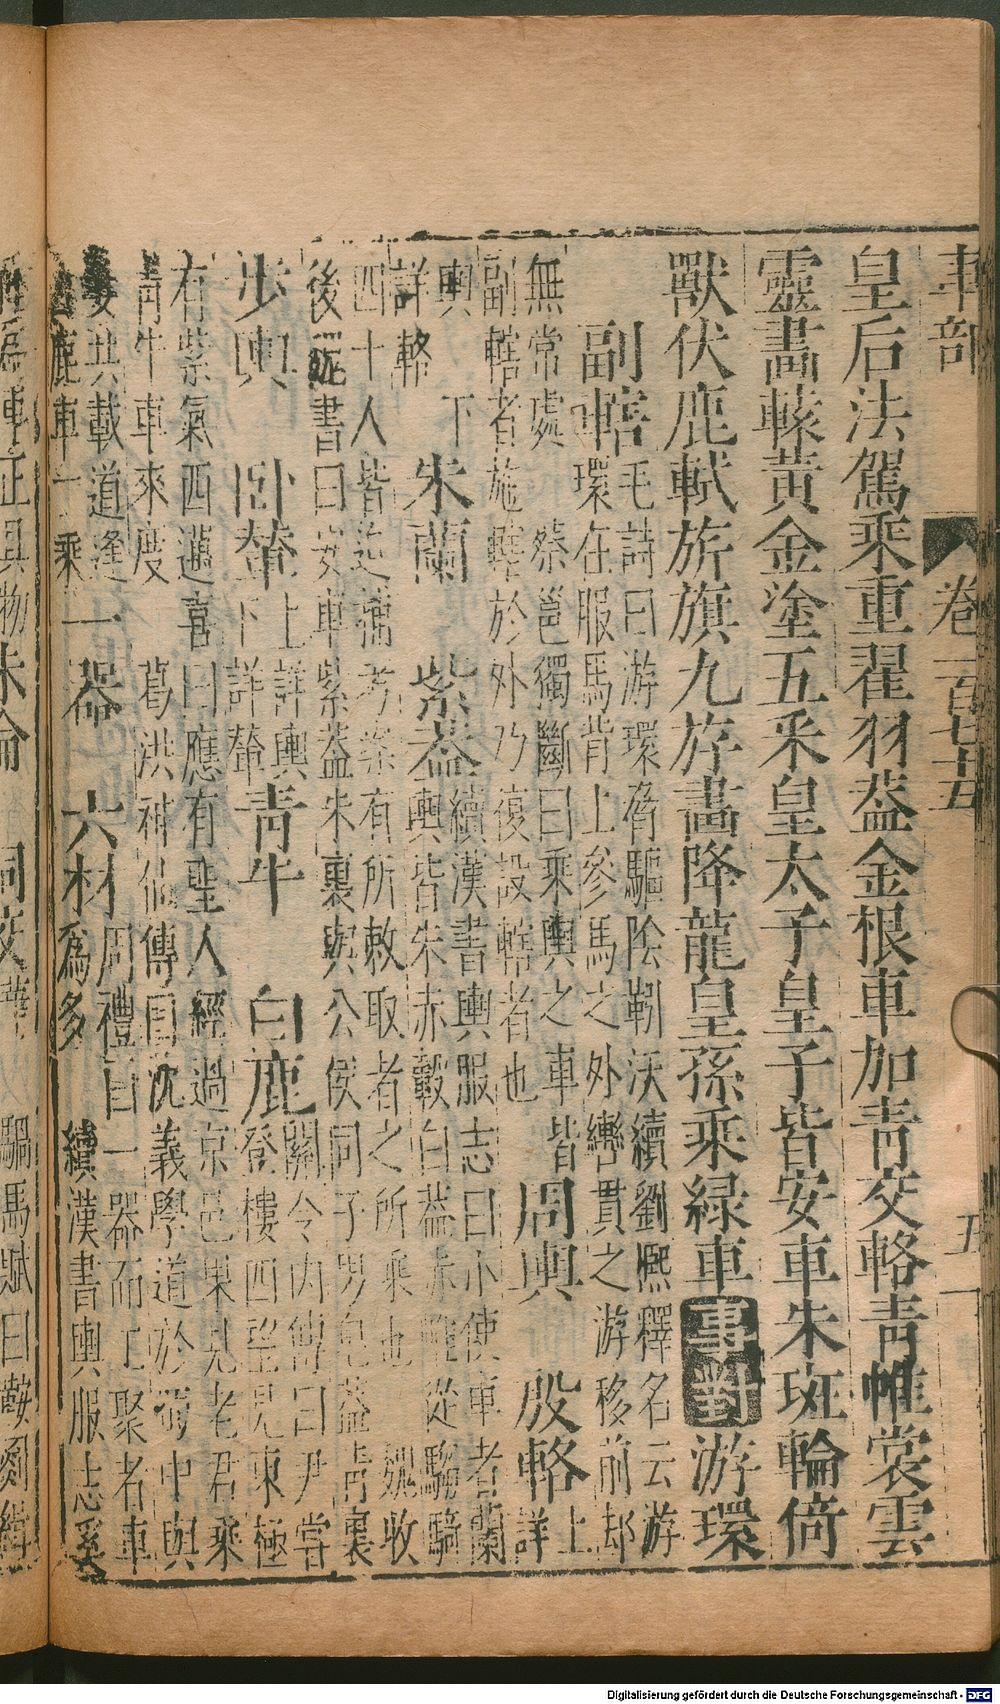 車部 卷一百七十五 五
皇后法駕乘重翟羽蓋金根車加青交輅青帷裳雲
靈畫轅黃金塗五釆皇太子皇子皆安車朱斑輪倚
獸伏鹿軾旂旗九斿畫降龍皇孫乘緑車事對游環
副轄 毛詩曰游環脅驅陰靷沃續劉熙釋名云游
環在服馬背上參馬之外轡貫之游移前却
無常處 蔡邕獨斷曰乘輿之車皆
副轄者施轄於外乃復設轄者也 周輿 殷輅 上詳
輿下
詳輅 朱蘭 紫蓋 續漢書輿服志曰小使車者蘭
輿皆朱赤轂白蓋赤帷從騶騎
四十人皆追捕考案有所敕取者之所乘也 魏收
後魏書曰安車紫蓋朱裏與公侯同子男皂蓋青裏
步輿 臥輦 上詳輿
下詳輦 青牛 白鹿 關令内傳曰尹嘗
登樓四望見東極
有紫氣西邁喜曰應有聖人經過京邑果見老君乘
青牛車來度 葛洪神仙傳曰沈義學道於蜀中與
妻共載道逢
白鹿車一乘 一器 六材 周禮曰一器而工聚者車
爲多 續漢書輿服志奚
爲車正具物朱
馬賦曰
Digitalisierung gefördert durch die Deutsche Forschungsgemeinschaft - DFG